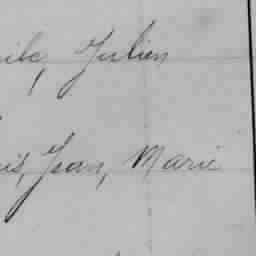 ile, Julien
is, Jean, Marie